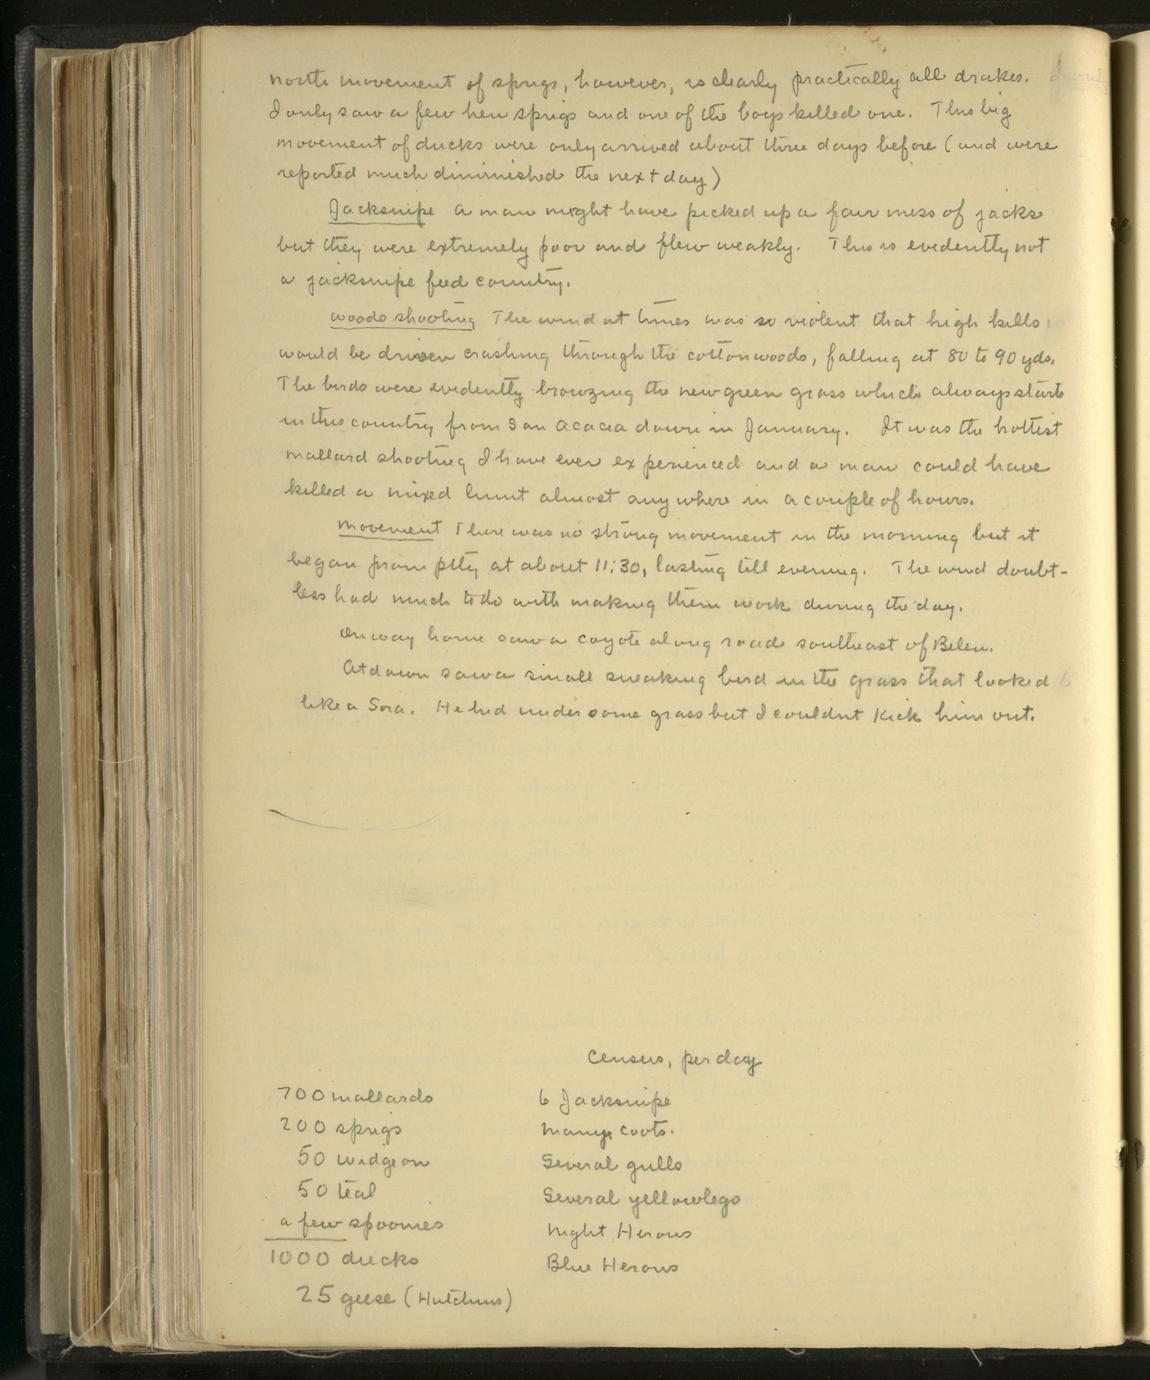 north movement of sprigs, however, is clearly practically all drakes.
I only saw a few hen sprigs and one of the boys killed one. This big
movement of ducks were only arrived about three days before (and were
reported much diminished the next day)
Jacksnipe A man might have picked up a fair mess of jacks
but they were extremely poor and flew weakly. This is evidently not
a jacksnipe feed country.
woods shooting The wind at times was so violent that high kills
would be driven crashing through the cottonwoods, falling at 80 to 90 yds.
The birds were evidently browzing the new green grass which always starts
in this country from San Acacia down in January. It was the hottest
mallard shooting I have ever experienced and a man could have
killed a mixed limit almost anywhere in a couple of hours.
movement There was no strong movement in the morning but it
began promptly at about 11:30, lasting till evening. The wind doubt-
less had much to do with making them work during the day.
On way home saw a coyote along road southeast of Belen.
At dawn saw a small sneaking bird in the grass that looked
like a Sora. He hid under some grass but I couldnt kick him out.
Census, per day
700 mallards
200 sprigs
50 widgeon
50 teal
a few spoonies
1000 ducks
25 geese (Hutchins)
6 Jacksnipe
Many coots.
Several gulls
Several yellowlegs
Night Herons
Blue Herons